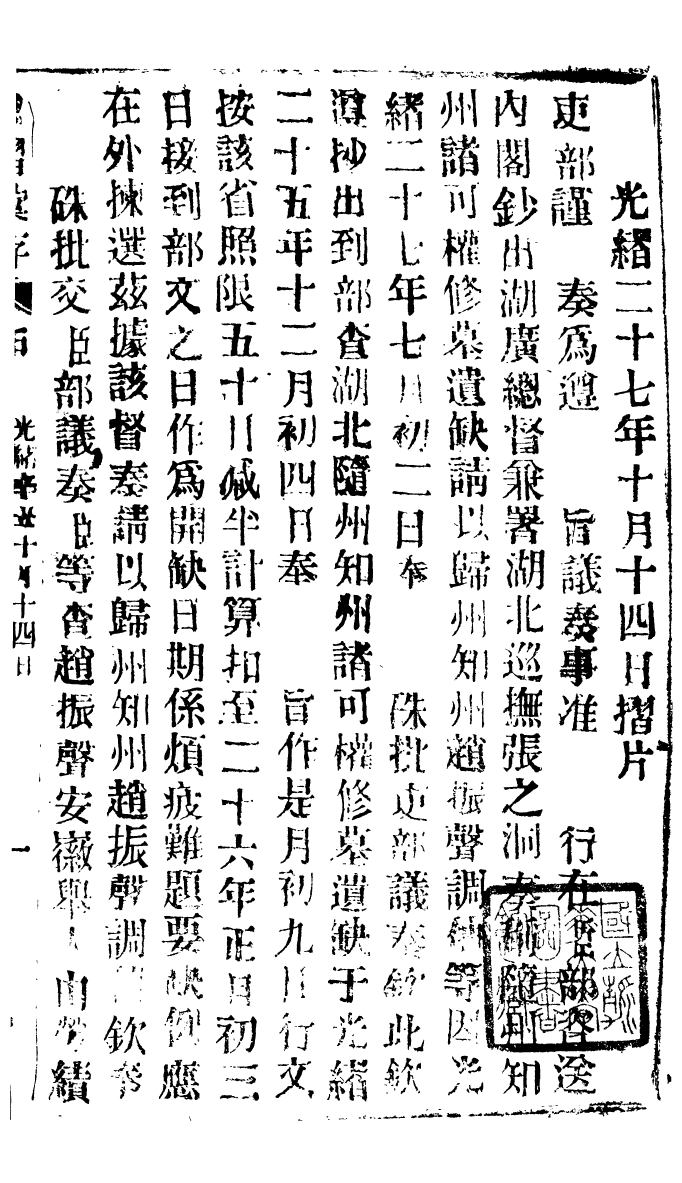 光緒二十七年十月十四日摺片
吏部謹　奏爲遵　旨議奏事准　行在吏部咨送
內閣鈔出湖廣總督兼署湖北巡撫張之洞奏稱隨州知
州諸可權修墓遺缺請以歸州知州趙振聲調補等因光
緒二十七年七月初二日奉　硃批吏部議奏欽此欽
遵抄出到部查湖北隨州知州諸可權修墓遺缺于光緒
二十五年十二月初四日奉　旨作是月初九日行文
按該省照限五十日減半計算扣至二十六年正月初三
日接到部文之日作爲開缺日期係煩疲難題要缺例應
在外揀選茲據該督奏請以歸州知州趙振聲調補欽奉
硃批交臣部議奏臣等查趙振聲安徽舉人由勞績
十月十四日
一